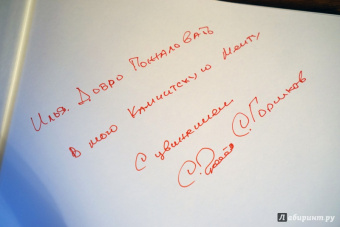 Илья. Добро Пожаловать
в мою Камчитскую мечту
С уважением
С. Горшков
Лабиринт.ру